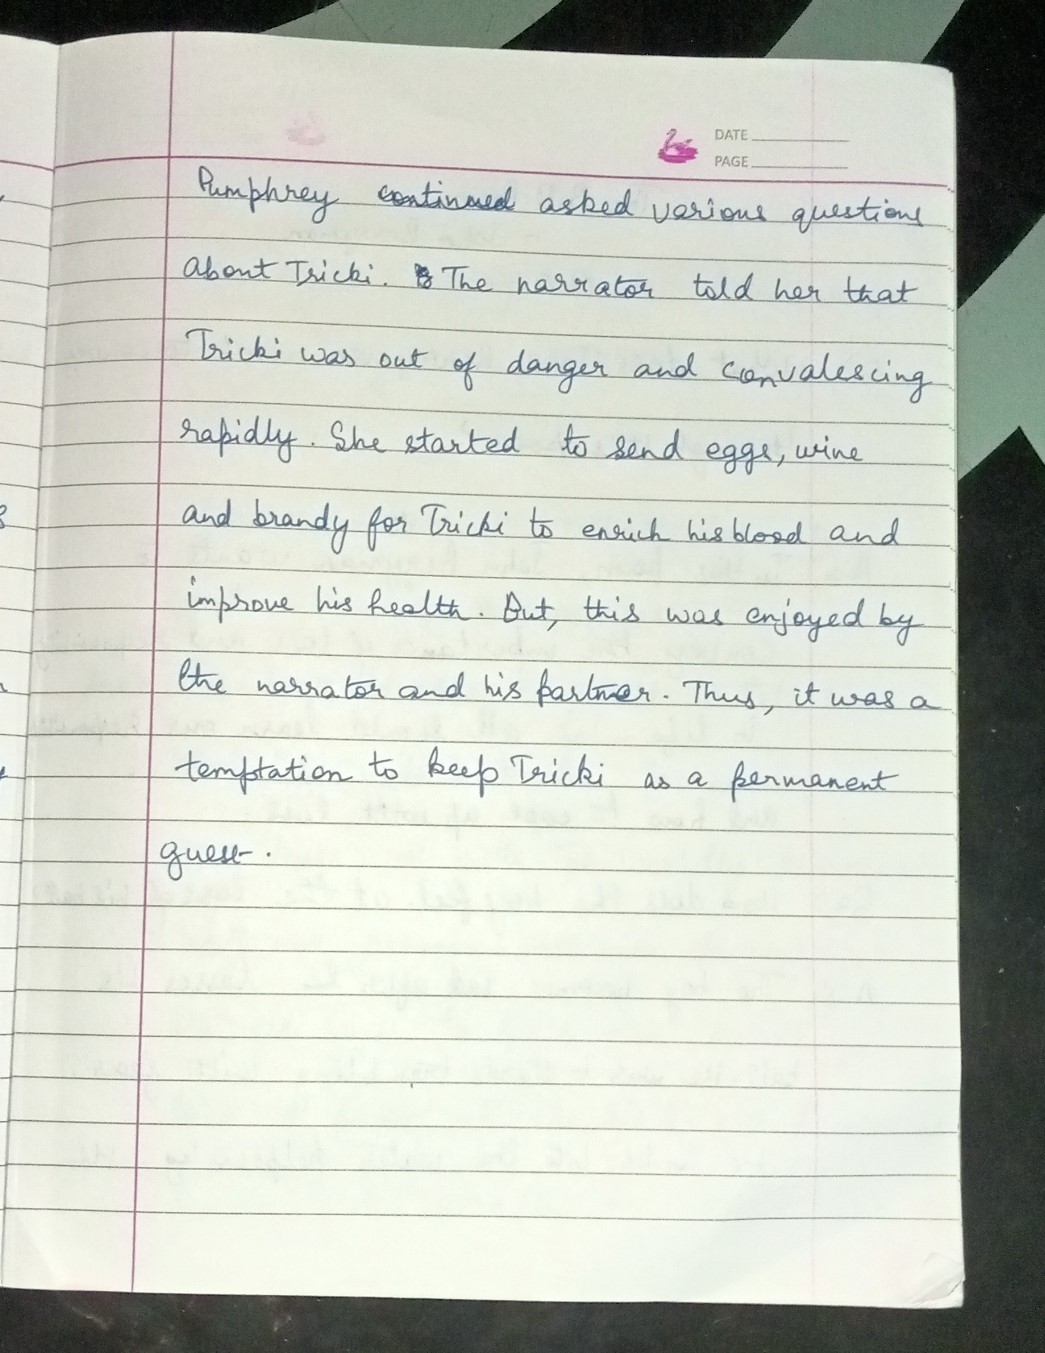 DATE
PAGE
Pumphrey continued asked various questions
about Tricki. The narrator told her that
Tricki was out of danger and convalescing
rapidly. She started to send eggs, wine
and brandy for Tricki to enrich his blood and
improve his health. But, this was enjoyed by
the narrator and his partner. Thus, it was a
temptation to keep Tricki as a permanent
guest.